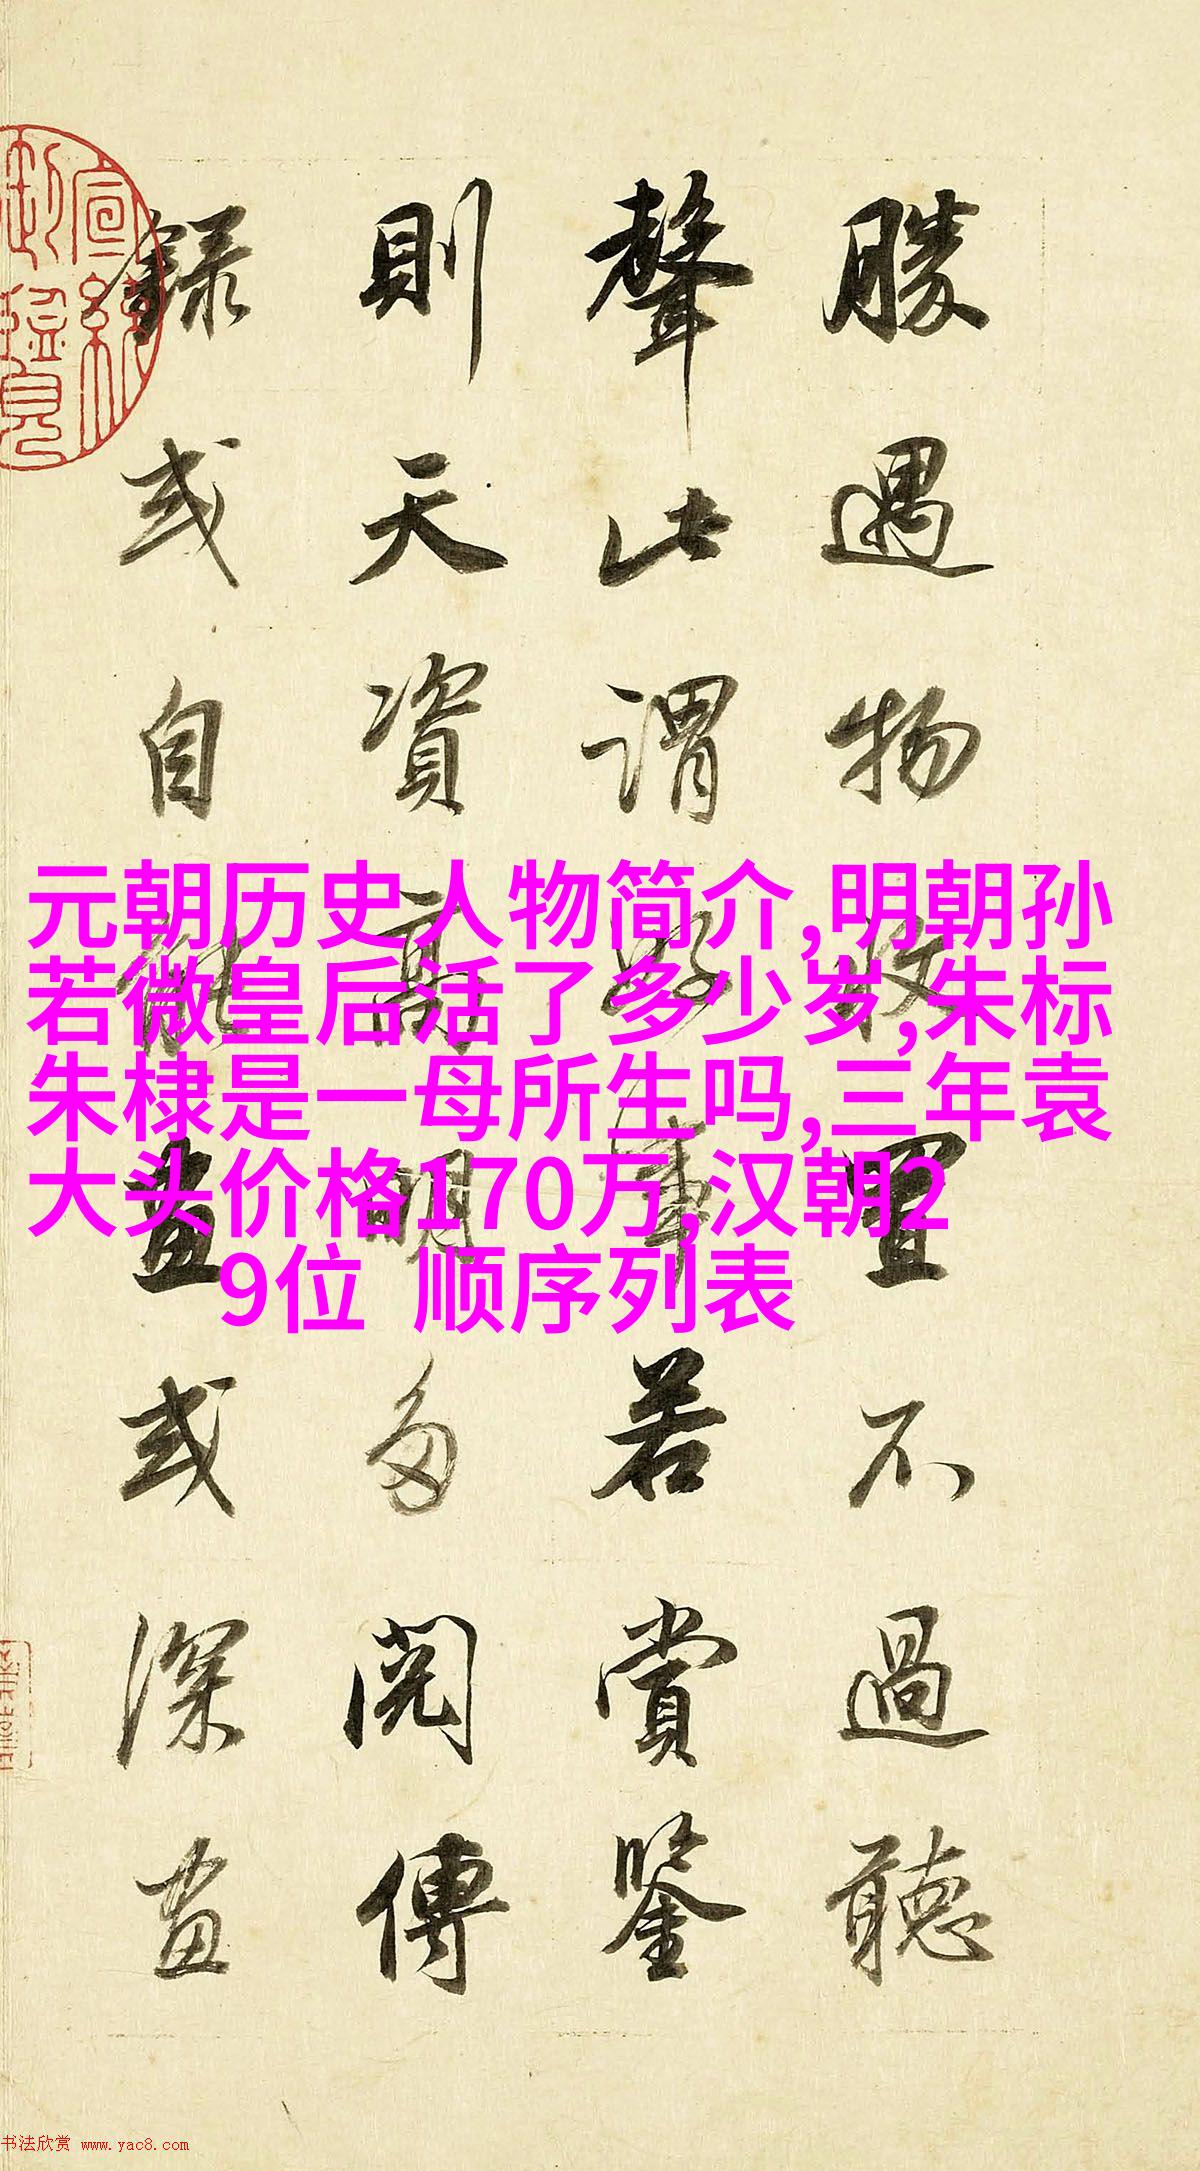 勝遇物收置不過聽
聲此謂好事若賞鑒
則天資高明多閱傳
錄或自能畫或深畫
元朝历史人物简介,明朝孙
若微皇后活了多少岁,朱标
朱棣是一母所生吗,三年袁
大头价格170万,汉朝2
9位 顺序列表
书法欣赏 www.yac8.com